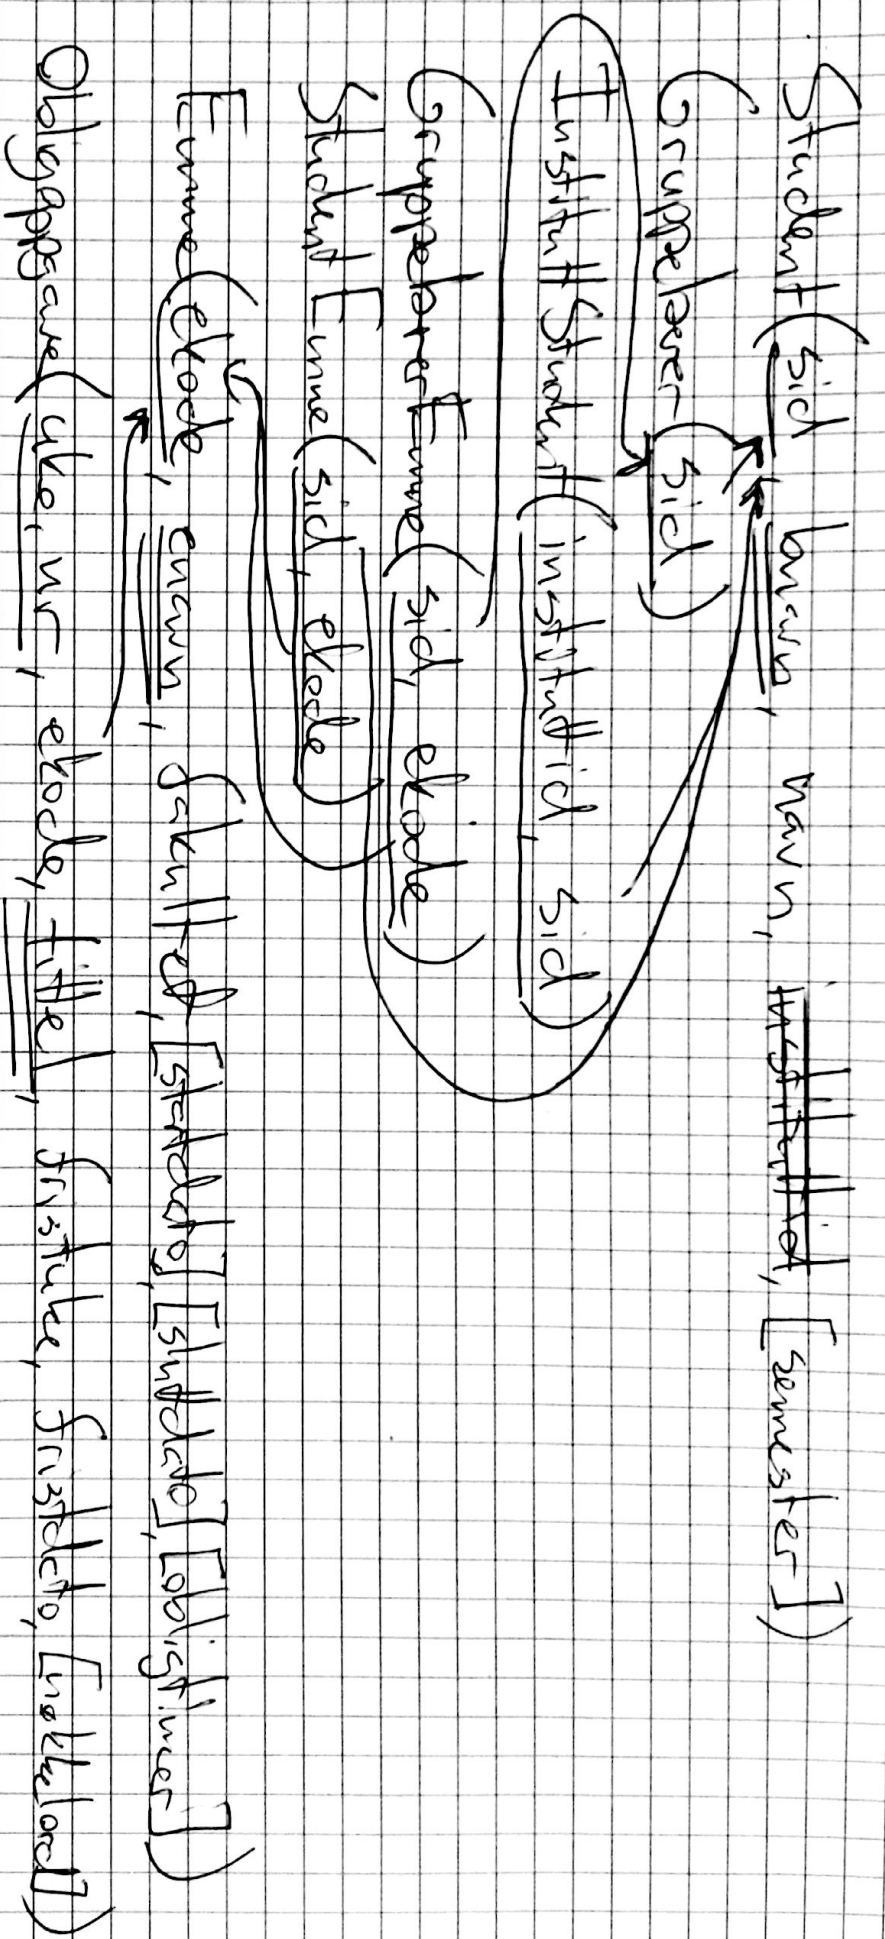 Student(sid, bnavn, navn, instituttid, [semester])
Gruppelærer(sid)
InstituttStudent(instituttid, sid)
GruppelærerEmne(sid, ekode)
StudentEmne(sid, ekode)
Emne(ekode, enavn, fakultet, [startdato], [sluttdato], [obligtimer])
Obligoppgave(uke, nr, ekode, tittel, fristuke, fristdato, [nøkkelord])